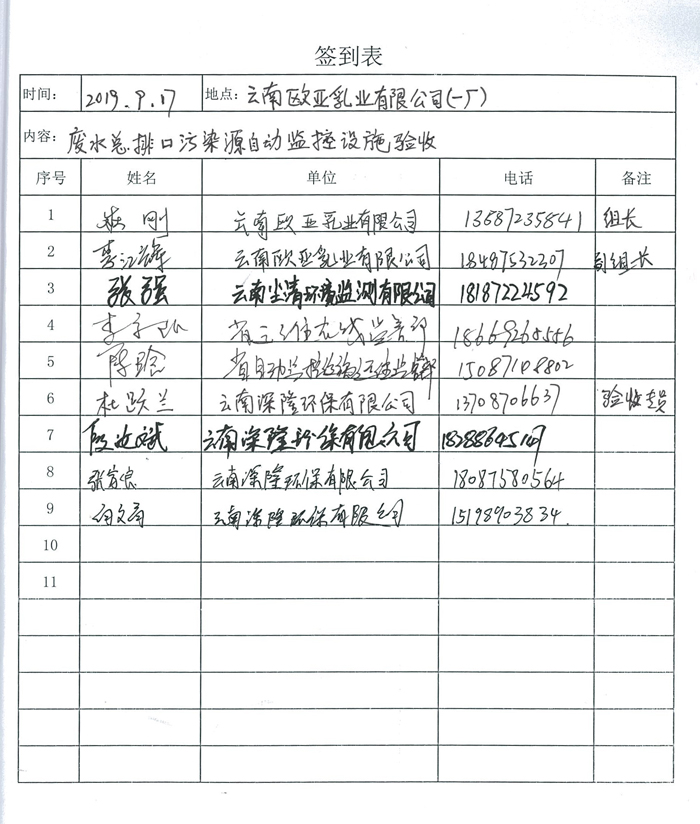 签到表
时间: 2019.9.17 地点: 云南欧亚乳业有限公司(一厂)
内容: 废水总排口污染源自动监控设施验收
序号 姓名 单位 电话 备注
1 刚 云南欧亚乳业有限公司 13687235841 组长
2 李江 云南欧亚乳业有限公司 18497532307 副组长
3 张强 云南尘清环境监测有限公司 18187224592
4 李 18669265556
5 陈 省自动监控 15087108802
6 杜跃兰 云南深隆环保有限公司 13708706637 验收专员
7 段 云南深隆环保有限公司
8 张 云南深隆环保有限公司 18087580564
9 云南深隆环保有限公司 15198903834.
10
11